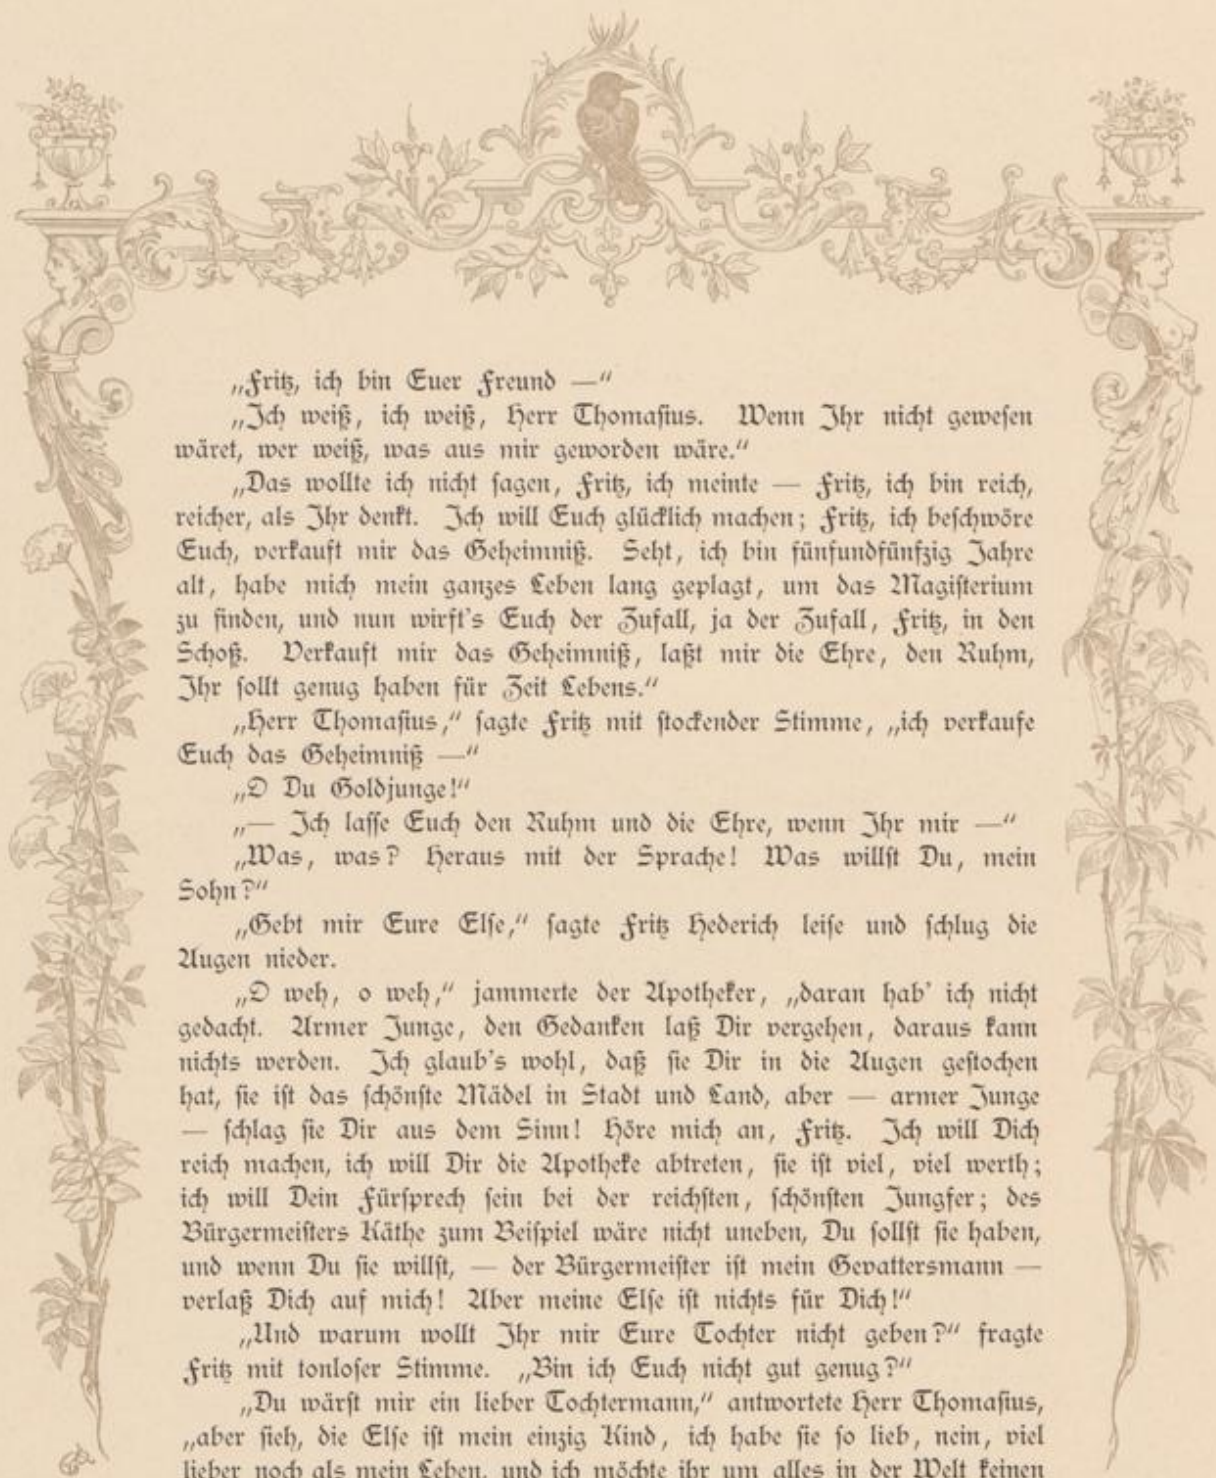 „Fritz, ich bin Euer Freund —“
„Ich weiß, ich weiß, Herr Thomasius. Wenn Ihr nicht gewesen
wäret, wer weiß, was aus mir geworden wäre.“
„Das wollte ich nicht sagen, Fritz, ich meinte — Fritz, ich bin reich,
reicher, als Ihr denkt. Ich will Euch glücklich machen; Fritz, ich beschwöre
Euch, verkauft mir das Geheimniß. Seht, ich bin fünfundfünfzig Jahre
alt, habe mich mein ganzes Leben lang geplagt, um das Magisterium
zu finden, und nun wirft's Euch der Zufall, ja der Zufall, Fritz, in den
Schoß. Verkauft mir das Geheimniß, laßt mir die Ehre, den Ruhm,
Ihr sollt genug haben für Zeit Lebens.“
„Herr Thomasius,“ sagte Fritz mit stockender Stimme, „ich verkaufe
Euch das Geheimniß —“
„O Du Goldjunge!“
„— Ich lasse Euch den Ruhm und die Ehre, wenn Ihr mir —“
„Was, was? Heraus mit der Sprache! Was willst Du, mein
Sohn?“
„Gebt mir Eure Else,“ sagte Fritz Hederich leise und schlug die
Augen nieder.
„O weh, o weh,“ jammerte der Apotheker, „daran hab' ich nicht
gedacht. Armer Junge, den Gedanken laß Dir vergehen, daraus kann
nichts werden. Ich glaub's wohl, daß sie Dir in die Augen gestochen
hat, sie ist das schönste Mädel in Stadt und Land, aber — armer Junge
— schlag sie Dir aus dem Sinn! Höre mich an, Fritz. Ich will Dich
reich machen, ich will Dir die Apotheke abtreten, sie ist viel, viel werth;
ich will Dein Fürsprech sein bei der reichsten, schönsten Jungfer; des
Bürgermeisters Käthe zum Beispiel wäre nicht uneben, Du sollst sie haben,
und wenn Du sie willst, — der Bürgermeister ist mein Gevattersmann —
verlaß Dich auf mich! Aber meine Else ist nichts für Dich!“
„Und warum wollt Ihr mir Eure Tochter nicht geben?“ fragte
Fritz mit tonloser Stimme. „Bin ich Euch nicht gut genug?“
„Du wärst mir ein lieber Tochtermann,“ antwortete Herr Thomasius,
„aber sieh, die Else ist mein einzig Kind, ich habe sie so lieb, nein, viel
lieber noch als mein Leben, und ich möchte ihr um alles in der Welt keinen